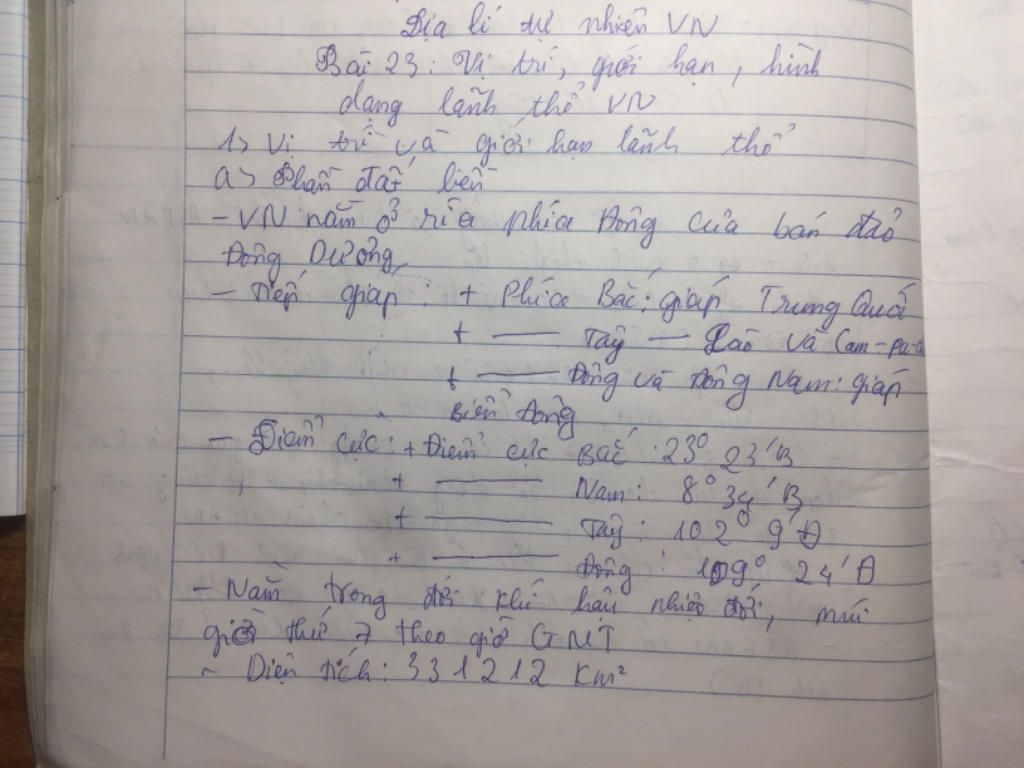 Địa lí tự nhiên VN
Bài 23: Vị trí, giới hạn, hình
dạng lãnh thổ VN
1> Vị trí và giới hạn lãnh thổ
a> Phần đất liền
- VN nằm ở rìa phía Đông của bán đảo
Đông Dương
- Tiếp giáp: + Phía Bắc: giáp Trung Quốc
+ —— Tây — Lào và Cam-pu-
+ —— Đông và Đông Nam: giáp
Biển Đông
- Điểm cực: + Điểm cực Bắc: 23° 23'B
+ —— Nam: 8° 34'B
+ —— Tây: 102° 9'Đ
+ —— Đông: 109° 24'Đ
- Nằm trong đới khí hậu nhiệt đới, múi
giờ thứ 7 theo giờ GMT
- Diện tích: 331212 Km²